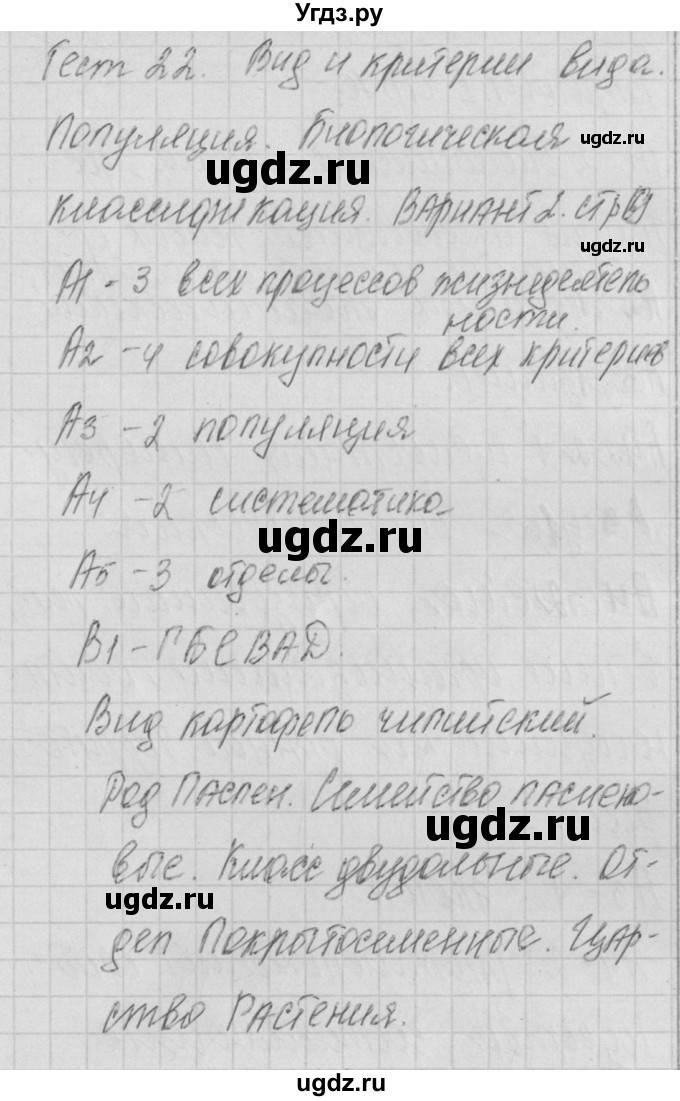 Угдз.ру
Тест 22. Вид и критерии вида.
ugdz.ru
Популяция. Биологическая
ugdz.ru
ugdz.ru
классификация. Вариант 2. стр
ugdz.ru
А1 - 3 всех процессов жизнедеятель
ности.
А2 - 4 совокупности всех критериев
А3 - 2 популяция
А4 - 2 систематика
ugdz.ru
А5 - 3 отделы.
В1 - ГБЕВАД.
Вид картофель чилийский.
Род Паслен. Семейство пасленo-
ugdz.ru
вые. Класс двудольные. От-
ugdz.ru
дел Покрытосеменные. Цар-
ство Растения.
ugdz.ru